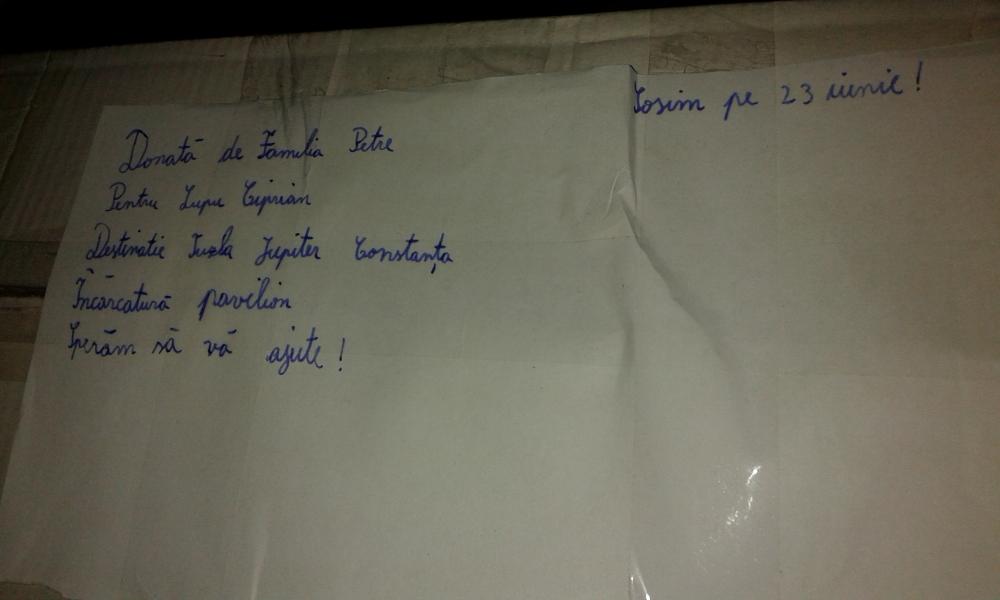 Donată de Familia Petre
Pentru Lupu Ciprian
Destinatie Tuzla Jupiter Constanța
Încărcatură pavilion
Sperăm să vă ajute!
Sosim pe 23 iunie!